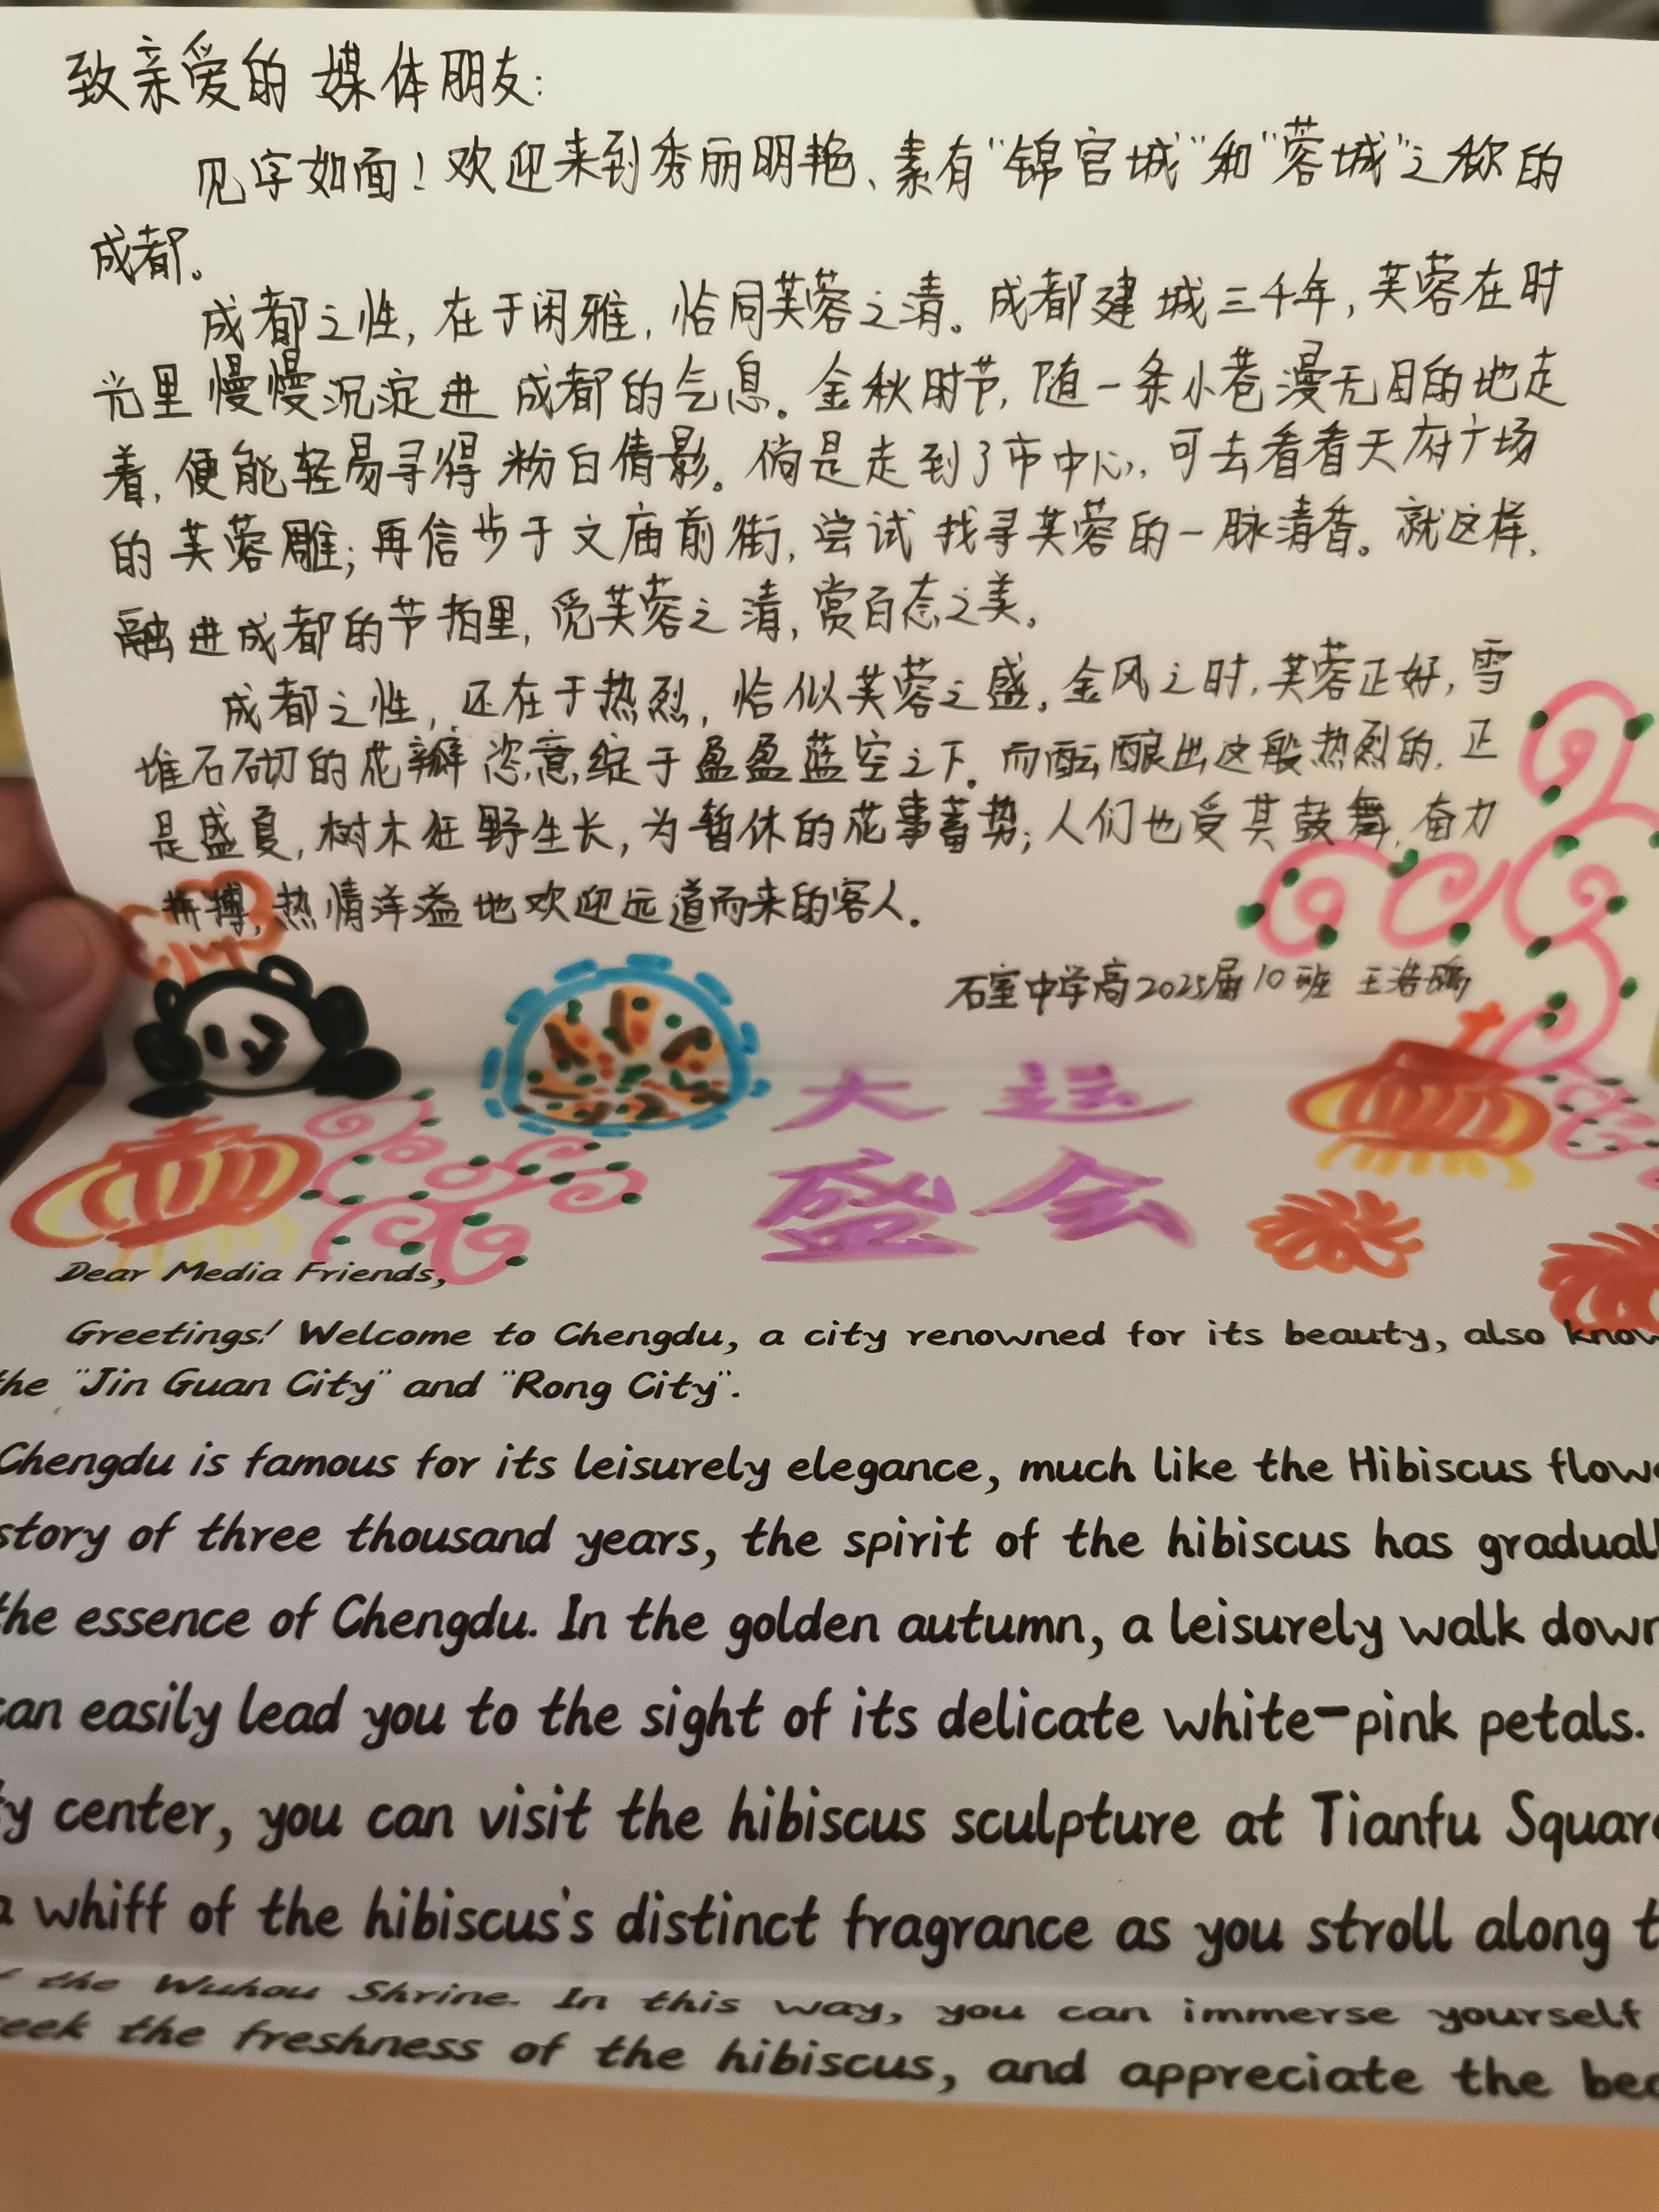 致亲爱的 媒体朋友:
见字如面！欢迎来到秀丽明艳、素有“锦官城”和“蓉城”之称的
成都。
成都之性，在于闲雅，恰同芙蓉之清。成都建城三千年，芙蓉在时
光里慢慢沉淀进成都的气息。金秋时节，随一条小巷漫无目的地走
着，便能轻易寻得粉白倩影。倘是走到了市中心，可去看看天府广场
的芙蓉雕；再信步于文庙前街，尝试找寻芙蓉的一脉清香。就这样，
融进成都的节拍里，觅芙蓉之清，赏百态之美。
成都之性，还在于热烈，恰似芙蓉之盛。金风之时，芙蓉正好，雪
堆石砌的花瓣恣意绽于盈盈蓝空之下。而酝酿出这般热烈的，正
是盛夏，树木狂野生长，为暂休的花事蓄势；人们也受其鼓舞，奋力
拼搏，热情洋溢地欢迎远道而来的客人。
石室中学高2025届10班 王浩
大运
盛会
Dear Media Friends,
Greetings! Welcome to Chengdu, a city renowned for its beauty, also know
the "Jin Guan City" and "Rong City".
Chengdu is famous for its leisurely elegance, much like the Hibiscus flow
story of three thousand years, the spirit of the hibiscus has gradual
the essence of Chengdu. In the golden autumn, a leisurely walk down
can easily lead you to the sight of its delicate white-pink petals.
ty center, you can visit the hibiscus sculpture at Tianfu Square
a whiff of the hibiscus's distinct fragrance as you stroll along t
the Wuhou Shrine. In this way, you can immerse yourself
eek the freshness of the hibiscus, and appreciate the bea